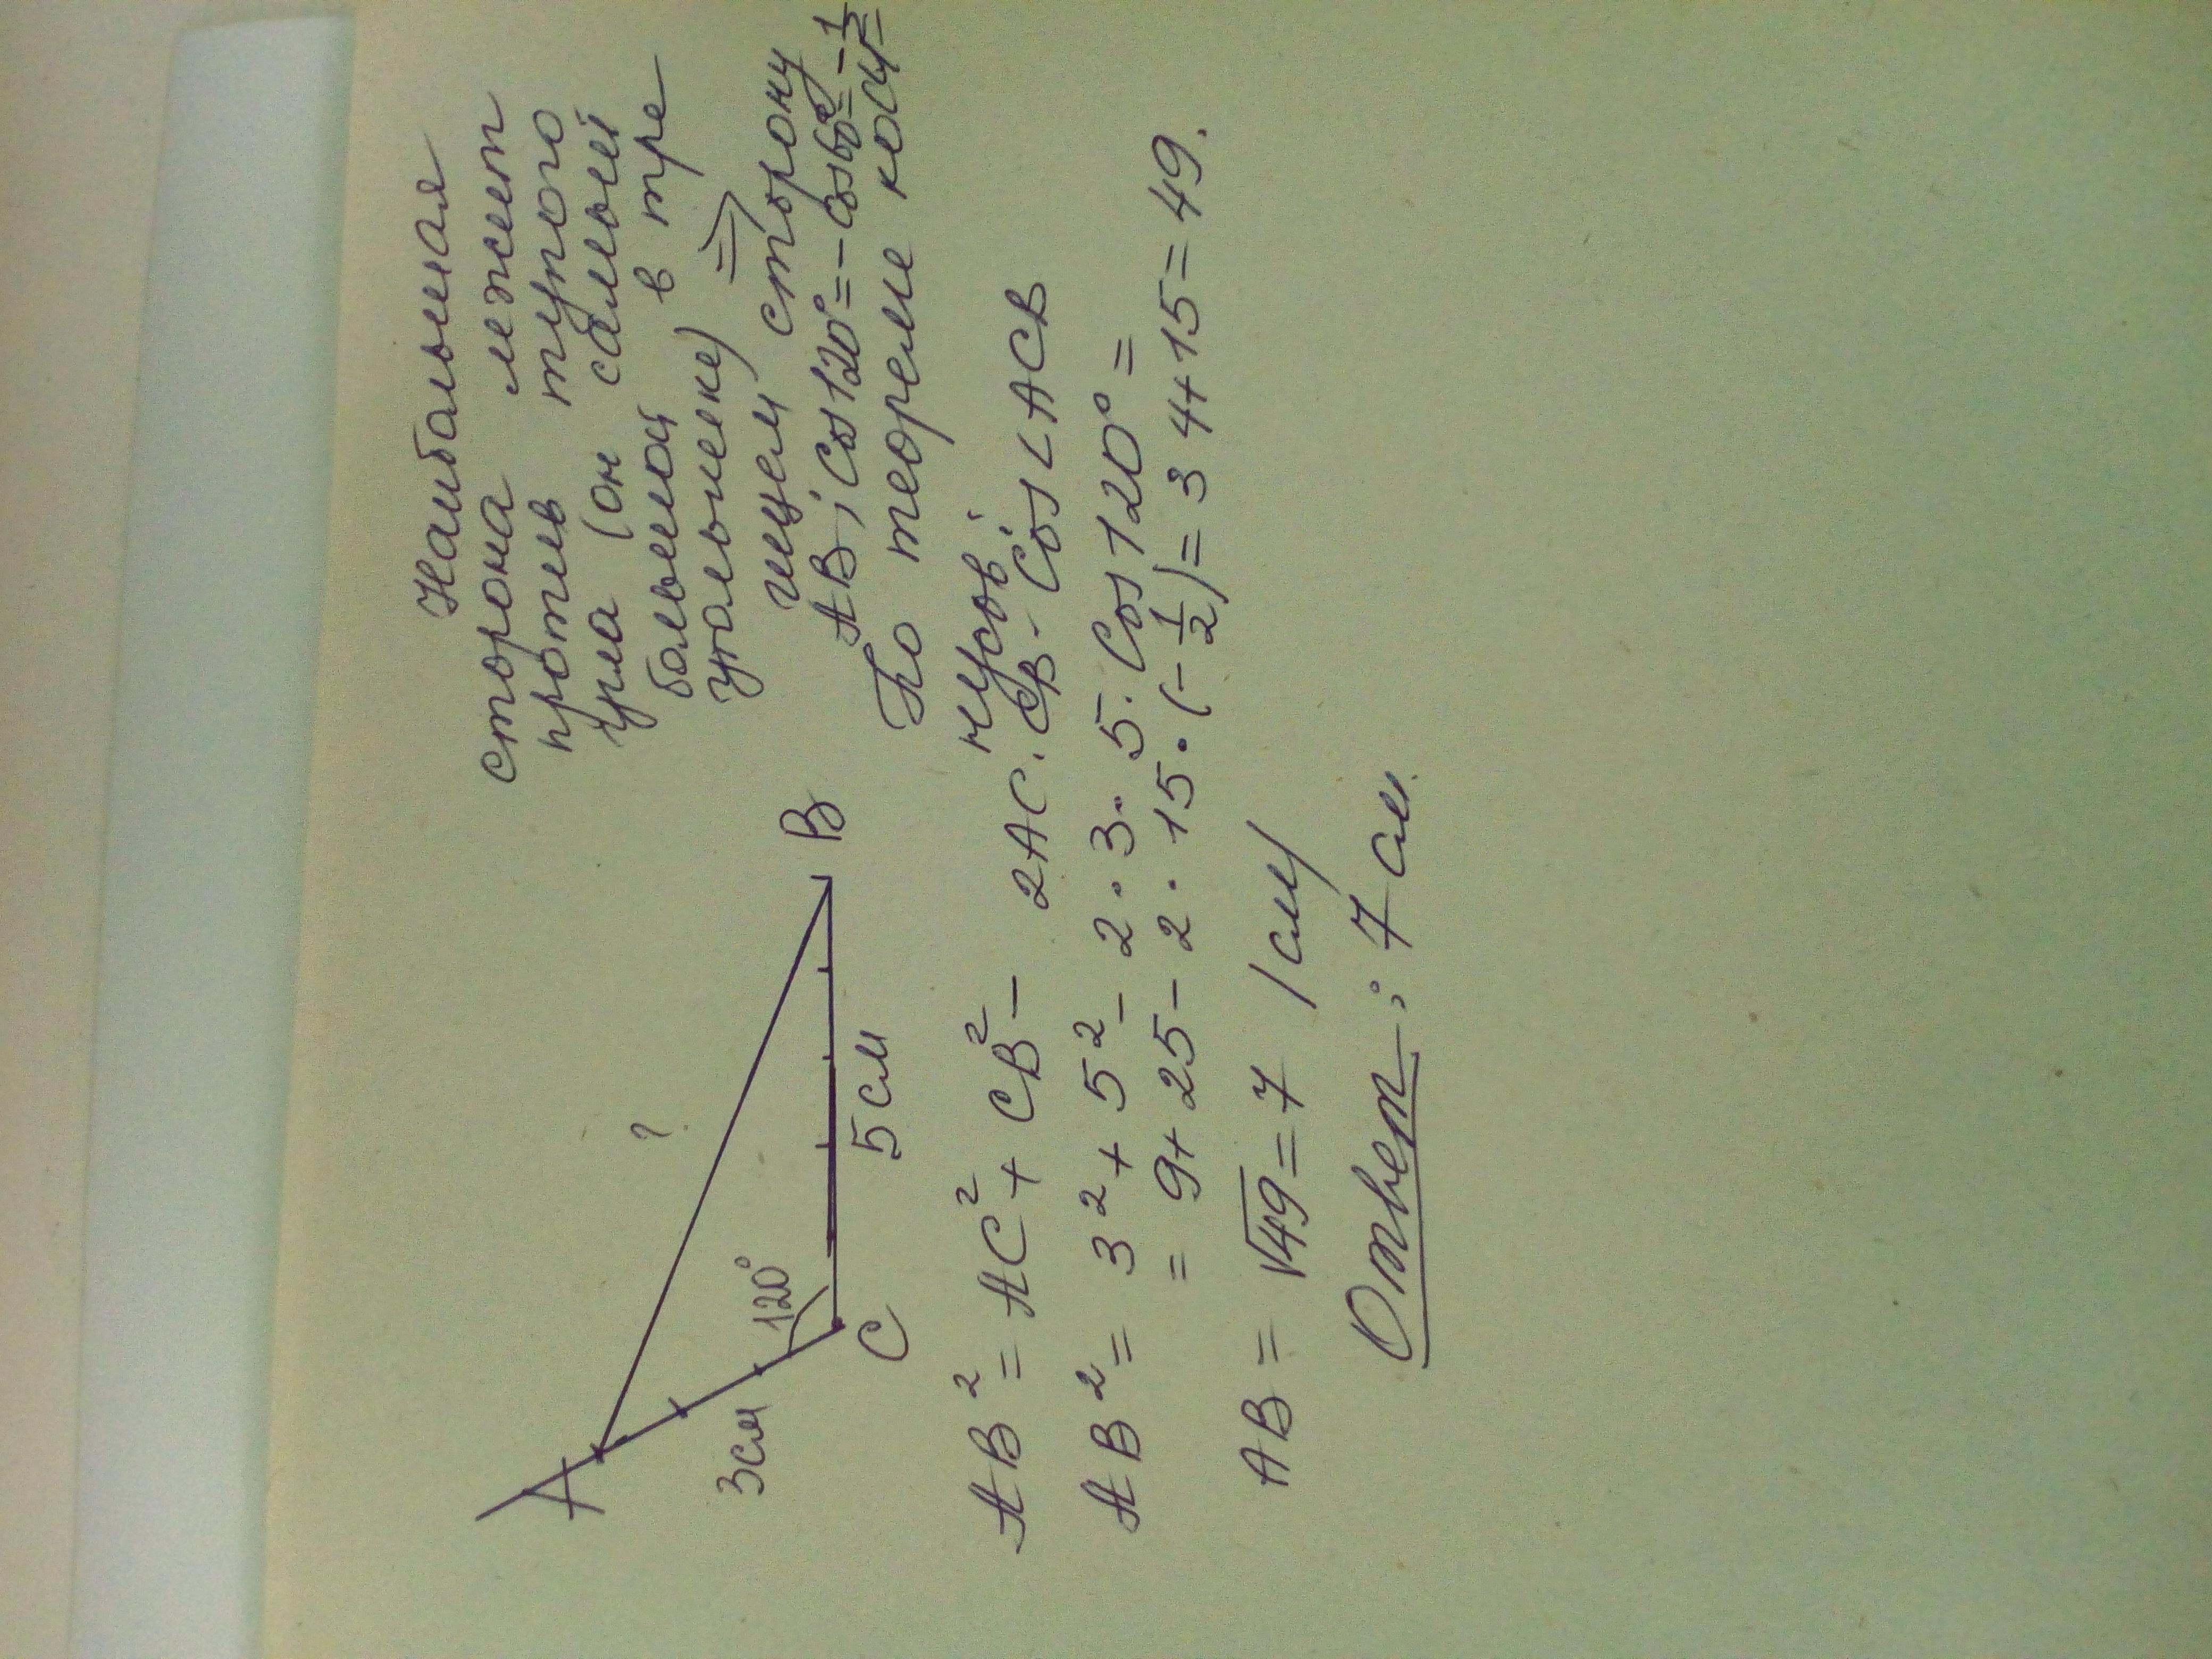 Наибольшая
сторона лежит
против тупого
угла (он самый
большой в тре
угольнике) ⇒
ищем сторону
AB; Cos120°=-Cos60°=-1/2
По теореме коси=
нусов:
A
?
B
3см
120°
C
5см
AB²=AC²+CB²- 2AC·CB·Cos∠ACB
AB²= 3²+5²-2·3·5·Cos120°=
= 9+25-2·15·(-1/2)=34+15=49.
AB= √49=7 (см)
Ответ: 7 см.